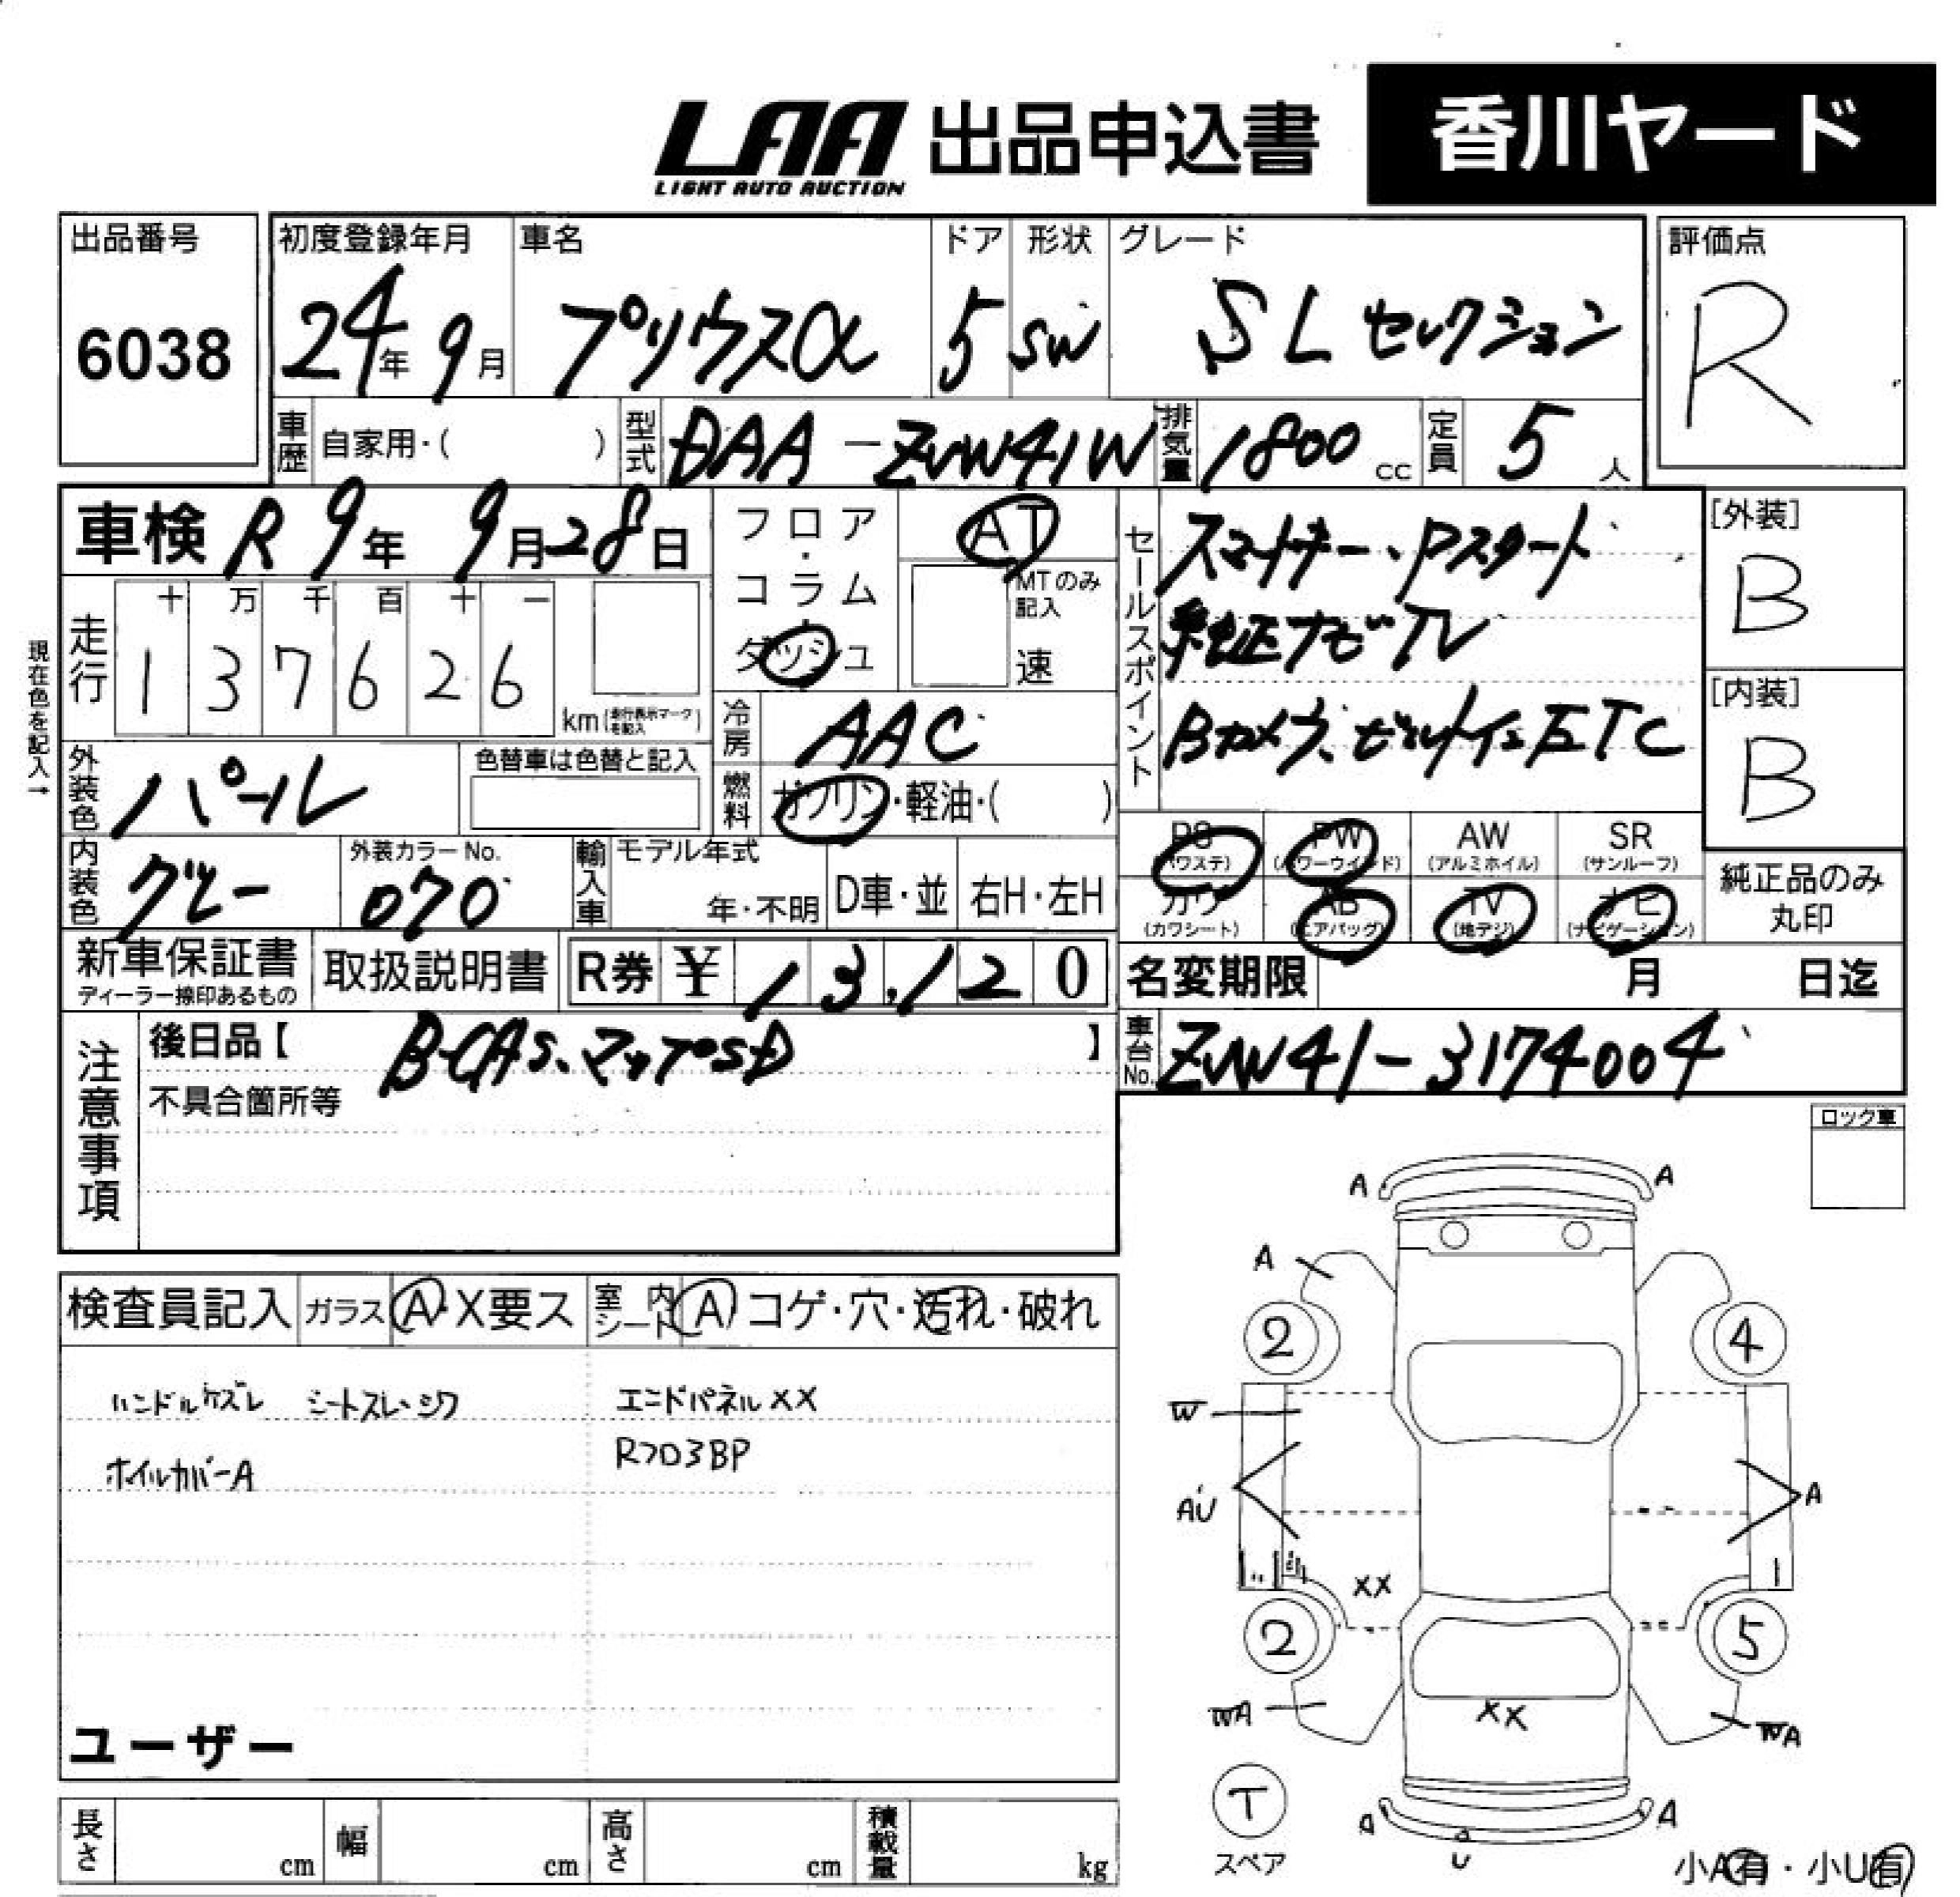 LAA 出品申込書 香川ヤード
LIGHT AUTO AUCTION
出品番号 初度登録年月 車名 ドア 形状 グレード 評価点
6038 24年 9月 プリウスα 5 SW SLセレクション R
車歴 自家用・( ) 型式 DAA-ZVW41W 排気量 1800cc 定員 5人
車検 R9年 9月28日
フロア・コラム・ダッシュ
AT
MTのみ記入
速
セールスポイント
スマートキー、Pスタート
純正ナビTV
Bカメラ、ビルトインETC
[外装]
B
[内装]
B
現在色を記入→
走行 十 万 千 百 十 一
1 3 7 6 2 6 km(走行表示マークを記入)
冷房 AAC
外装色 パール 色替車は色替と記入
燃料 ガソリン・軽油・( )
内装色 グレー 外装カラーNo. 070
輸入車 モデル年式 年・不明 D車・並 右H・左H
PS(パワステ) PW(パワーウインド) AW(アルミホイル) SR(サンルーフ)
カワ(カワシート) AB(エアバッグ) TV(地デジ) ナビ(ナビゲーション)
純正品のみ丸印
新車保証書 取扱説明書 R券 ¥ 1 3,1 2 0
ディーラー捺印あるもの
名変期限 月 日迄
注意事項
後日品【 B-CAS、マップSD 】
不具合箇所等
車台No. ZVW41-3174004
ロック車
検査員記入 ガラス A・X要ス 室内シート A コゲ・穴・汚れ・破れ
ハンドルケズレ シートスレ・シワ エンドパネルXX
ホイルカバーA RフロアBP
ユーザー
長さ cm 幅 cm 高さ cm 積載量 kg
A A
A
2 4
W
AU A
XX
2 5
WA XX WA
T
スペア
A A
U
小A有・小U有